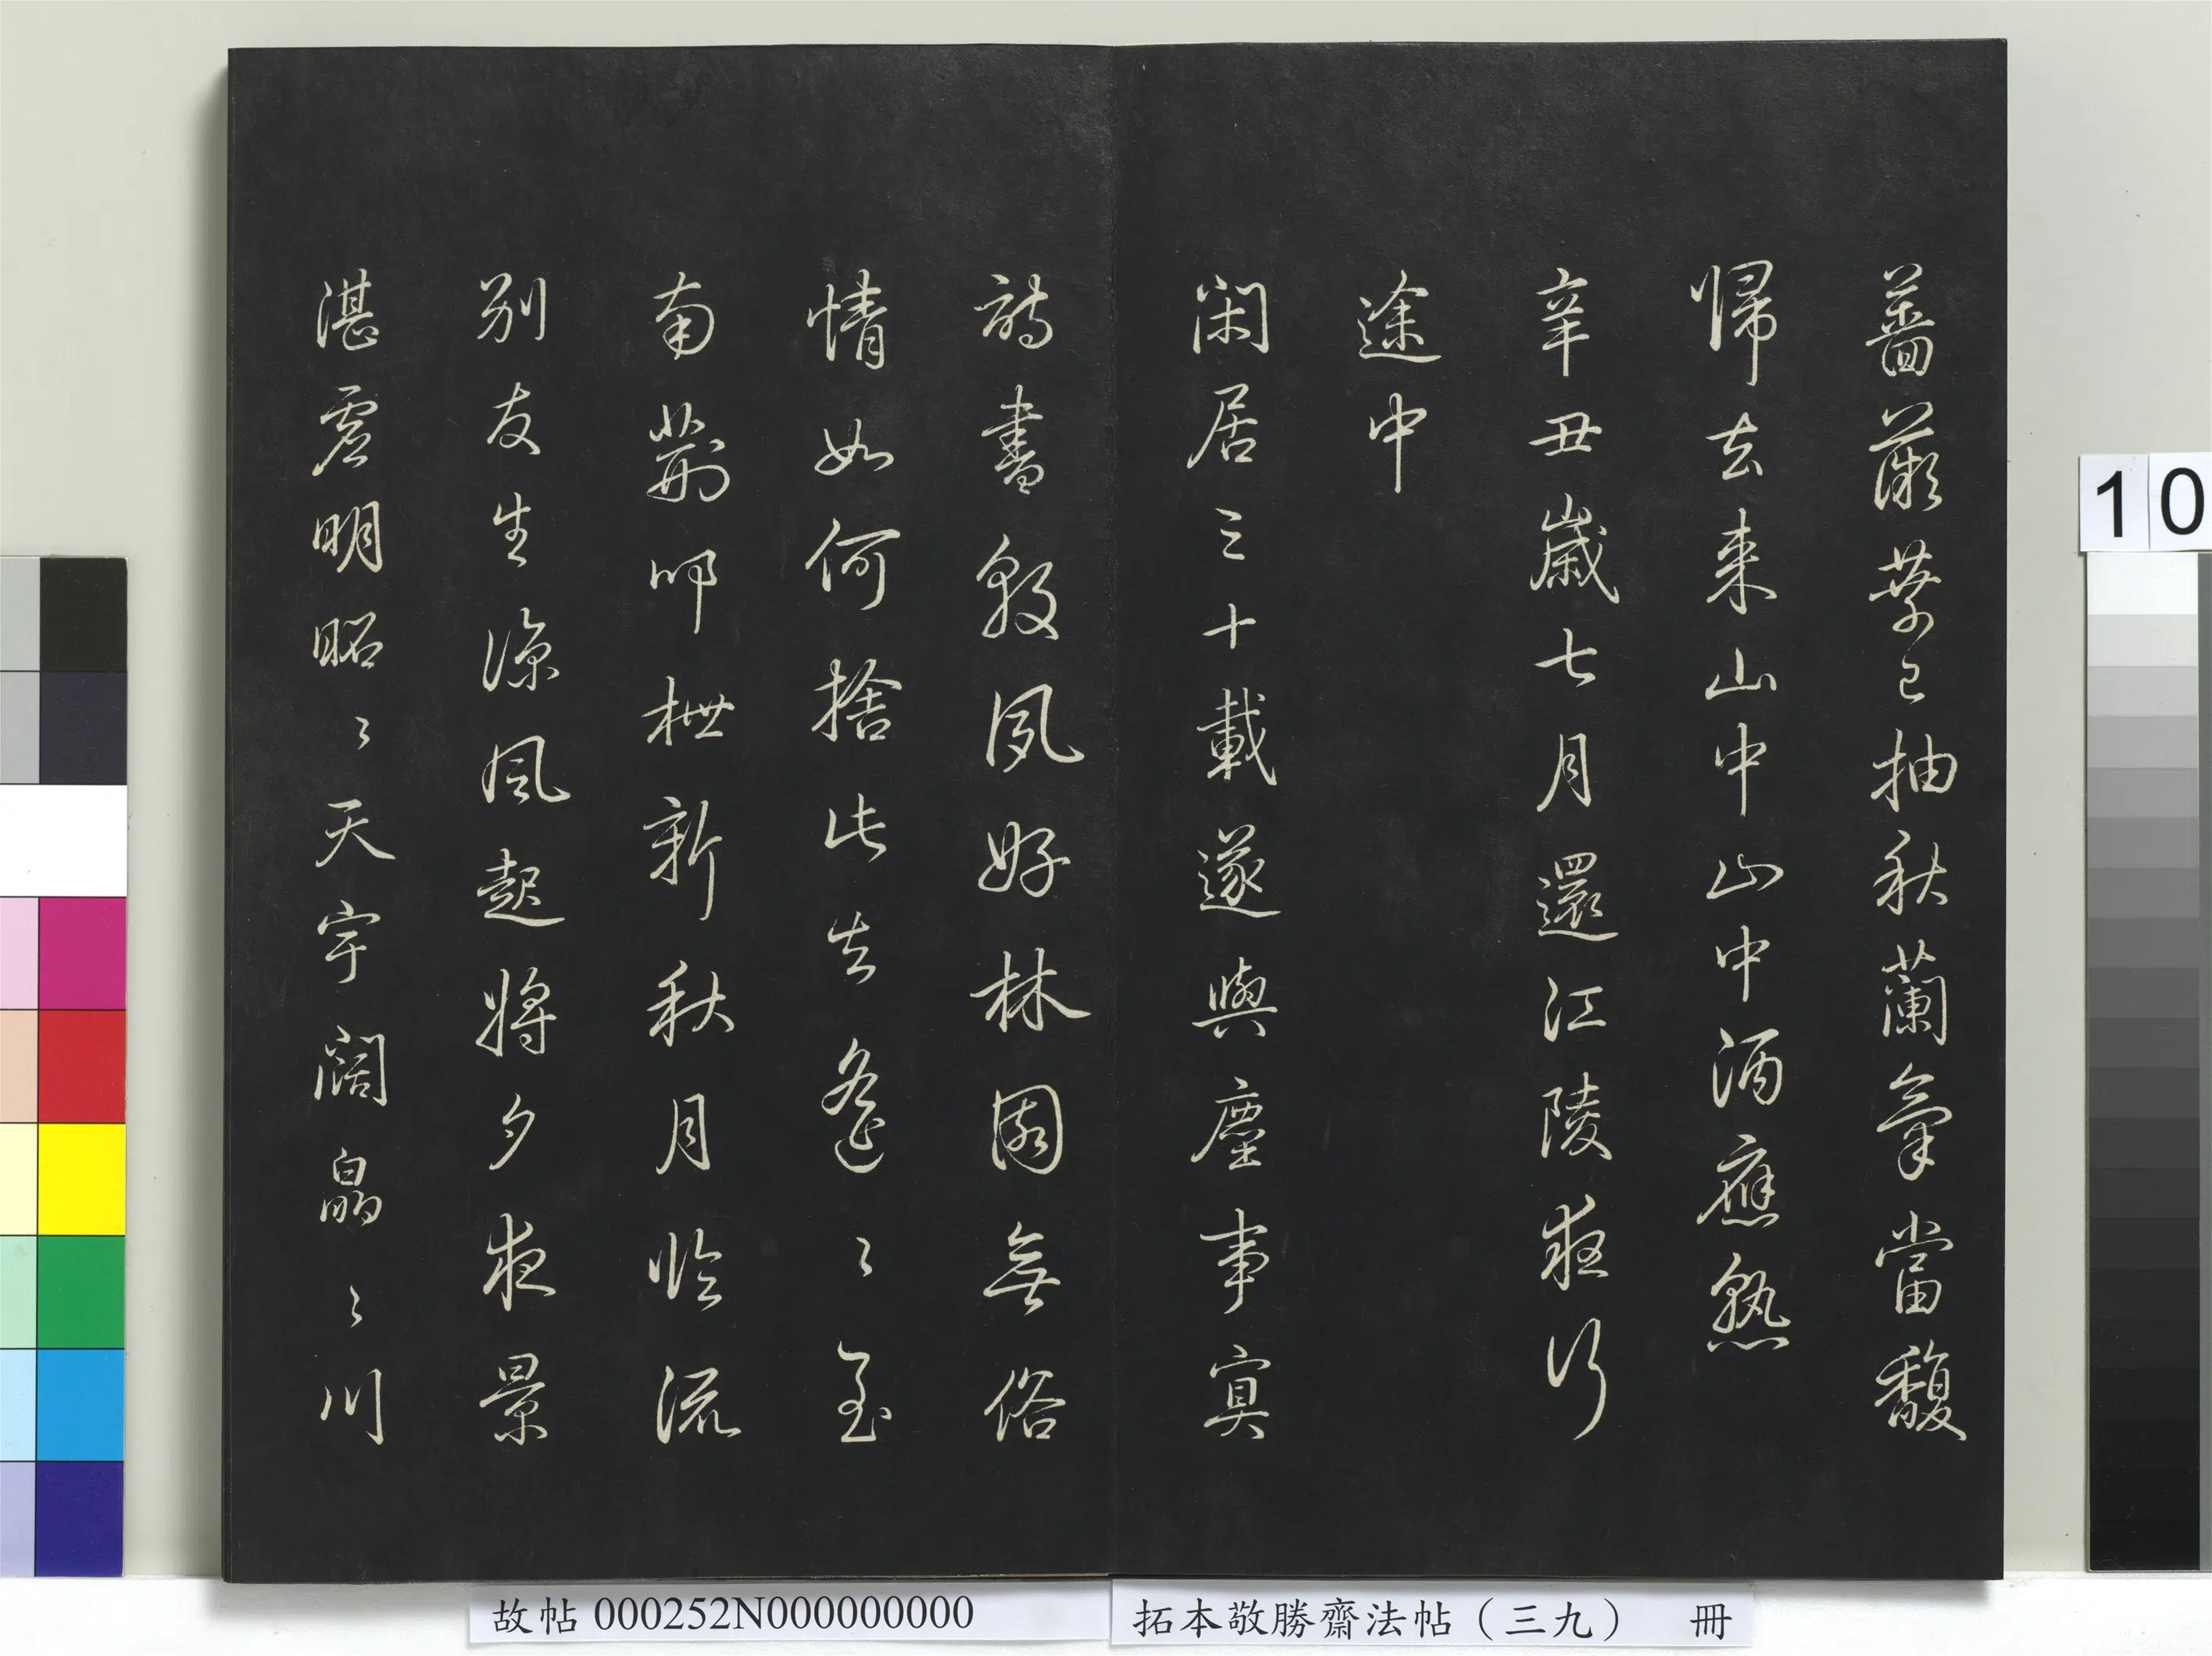 薔薇葉已抽秋蘭氣當馥
歸去来山中山中酒應熟
辛丑歲七月還江陵夜行
途中
閑居三十載遂與塵事冥
詩書敦夙好林園無俗
情如何捨此去遙〻至
南荊叩枻新秋月臨流
別友生涼風起將夕夜景
湛虛明昭〻天宇闊皛〻川
10
故帖 000252N000000000
拓本敬勝齋法帖（三九） 冊